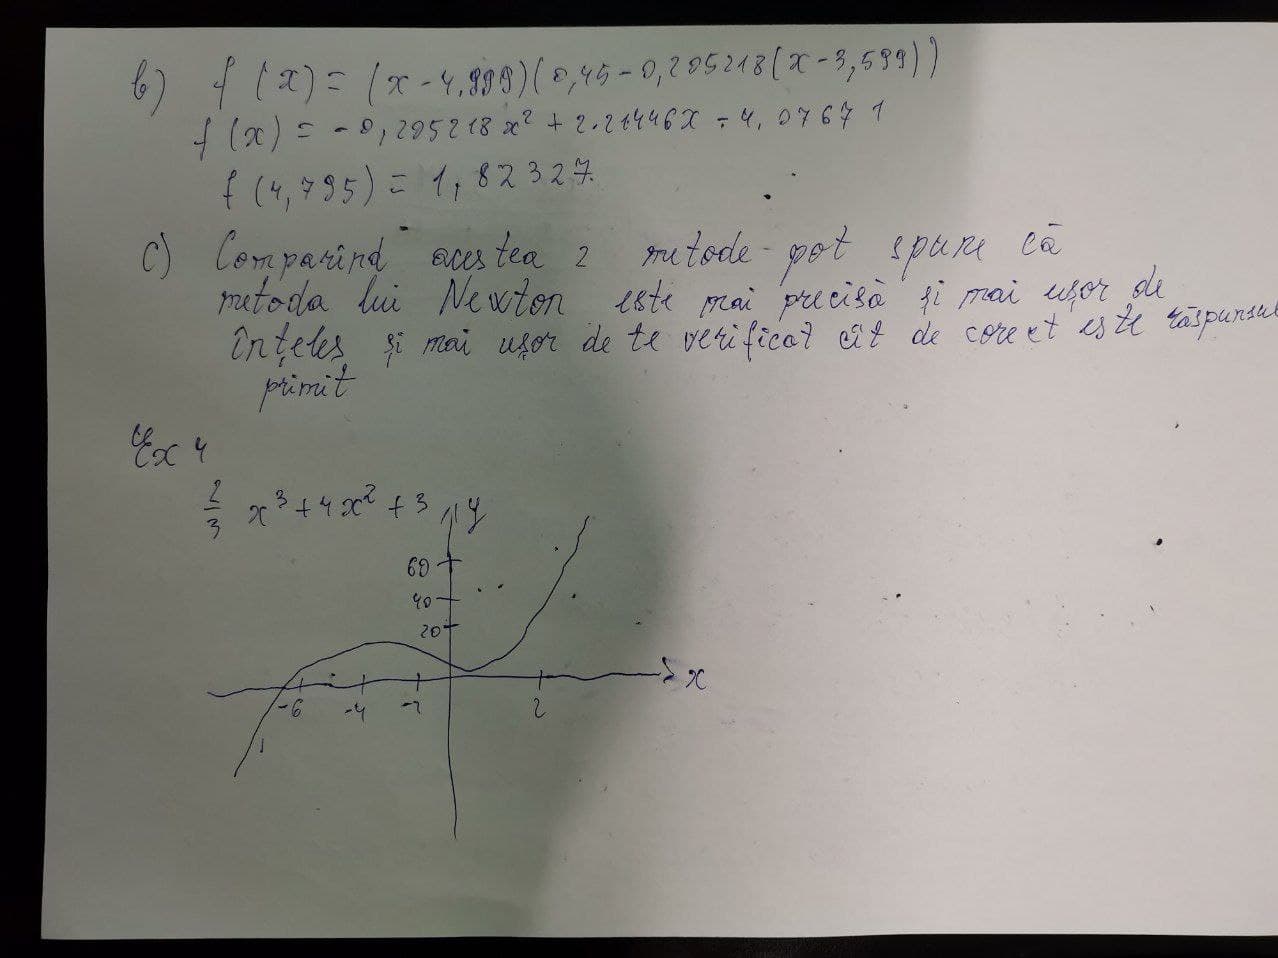 b) f(x) = (x - 4,999)(0,45 - 0,205218(x - 3,599))
f(x) = - 0,205218x² + 2.21446x - 4,07671
f(4,795) = 1,82327.
c) Comparînd acestea 2 metode pot spune că
metoda lui Newton este mai precisă și mai ușor de
înțeles și mai ușor de te verificat cît de corect este răspunsul
primit
Ex 4
2/3 x³ + 4x² + 3
y
60
40
20
-6 -4 -2 2
x